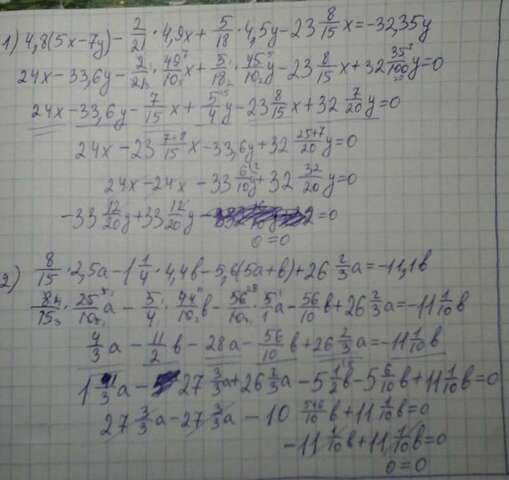 1) 4,8(5x-7y) - 2/21 · 4,9x + 5/18 · 4,5y - 23 8/15 x = -32,35y
24x - 33,6y - 2/21 · 49/10 x + 5/18 · 45/10 y - 23 8/15 x + 32 35/100 y = 0
24x - 33,6y - 7/15 x + 5/4 y - 23 8/15 x + 32 7/20 y = 0
24x - 23 7+8/15 x - 33,6y + 32 25+7/20 y = 0
24x - 24x - 33 6/10 y + 32 32/20 y = 0
-33 12/20 y + 33 12/20 y = 0
0 = 0
2) 8/15 · 2,5a - 1 1/4 · 4,4b - 5,6(5a+b) + 26 2/3 a = -11,1b
8/15 · 25/10 a - 5/4 · 44/10 b - 56/10 · 5/1 a - 56/10 b + 26 2/3 a = -11 1/10 b
4/3 a - 11/2 b - 28a - 56/10 b + 26 2/3 a = -11 1/10 b
1 1/3 a - 27 3/3 a + 26 2/3 a - 5 1/2 b - 5 6/10 b + 11 1/10 b = 0
27 3/3 a - 27 3/3 a - 10 5+6/10 b + 11 1/10 b = 0
-11 1/10 b + 11 1/10 b = 0
0 = 0